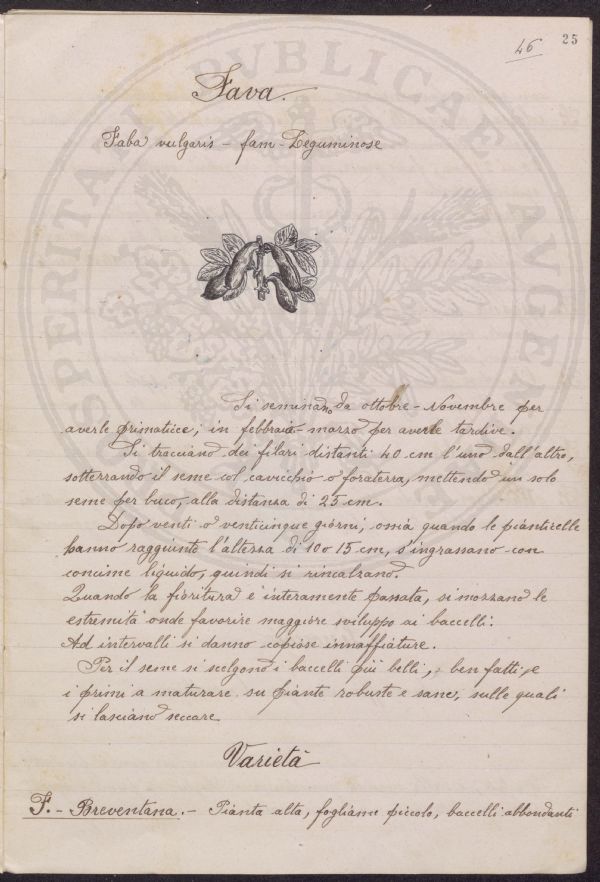 46 25
Fava.
Faba vulgaris - fam - Leguminose
Si seminano da ottobre - Novembre per
averle primaticce; in febbraio - marzo per averle tardive.
Si tracciano dei filari distanti 40 cm l'uno dall'altro,
sotterrando il seme col cavicchio o foraterra, mettendo un solo
seme per buco, alla distanza di 25 cm.
Dopo venti o venticinque giorni, ossia quando le pianticelle
hanno raggiunto l'altezza di 10 o 15 cm, s'ingrassano con
concime liquido, quindi si rincalzano.
Quando la fioritura è interamente passata, si mozzano le
estremità onde favorire maggiore sviluppo ai baccelli.
Ad intervalli si danno copiose innaffiature.
Per il seme si scelgono i baccelli più belli, ben fatti, e
i primi a maturare su piante robuste e sane, sulle quali
si lasciano seccare.
Varietà
F. - Breventana. - Pianta alta, fogliame piccolo, baccelli abbondanti
PUBLICAE
AVGEN
SPERITATI